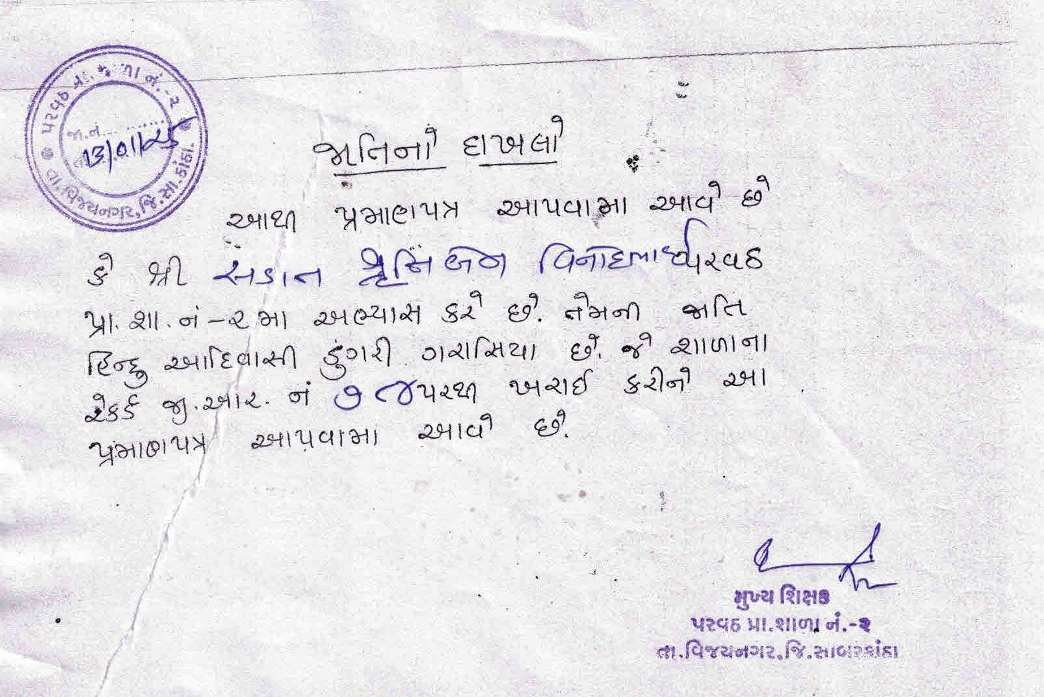 પરવઠ પ્રા. શાળા નં.-૨
જા.નં.
13/01/25
તા.વિજયનગર, જિ.સા.કાંઠા.
જાતિનો દાખલો
આથી પ્રમાણપત્ર આપવામા આવે છે
કે શ્રી અડાન વિનોદભાઈ પરવઠ
પ્રા.શા.નં-૨ મા અભ્યાસ કરે છે. તેમની જાતિ
હિન્દુ આદિવાસી ડુંગરી ગરાસિયા છે. જે શાળાના
રેકર્ડ જી.આર. નં ૭૮૪ પરથી ખરાઈ કરીને આ
પ્રમાણપત્ર આપવામા આવે છે.
મુખ્ય શિક્ષક
પરવઠ પ્રા.શાળા નં.-૨
તા.વિજયનગર,જિ.સાબરકાંઠા